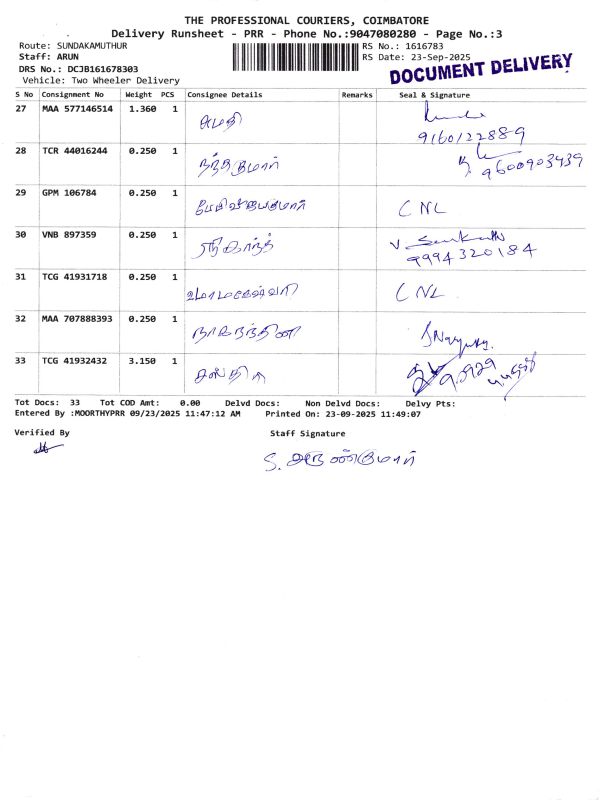 THE PROFESSIONAL COURIERS, COIMBATORE
Delivery Runsheet - PRR - Phone No.:9047080280 - Page No.:3
Route: SUNDAKAMUTHUR RS No.: 1616783
Staff: ARUN RS Date: 23-Sep-2025
DRS No.: DCJB161678303
Vehicle: Two Wheeler Delivery
DOCUMENT DELIVERY
S No Consignment No Weight PCS Consignee Details Remarks Seal & Signature
27 MAA 577146514 1.360 1
9160122889
28 TCR 44016244 0.250 1 நந்தகுமார்
9600903439
29 GPM 106784 0.250 1 CNL
30 VNB 897359 0.250 1 ஸ்ரீகாந்த்
9994320184
31 TCG 41931718 0.250 1 உமாமகேஷ்வரி CNL
32 MAA 707888393 0.250 1 நாகநந்தினி
33 TCG 41932432 3.150 1
Tot Docs: 33 Tot COD Amt: 0.00 Delvd Docs: Non Delvd Docs: Delvy Pts:
Entered By :MOORTHYPRR 09/23/2025 11:47:12 AM Printed On: 23-09-2025 11:49:07
Verified By Staff Signature
S. அருண்குமார்